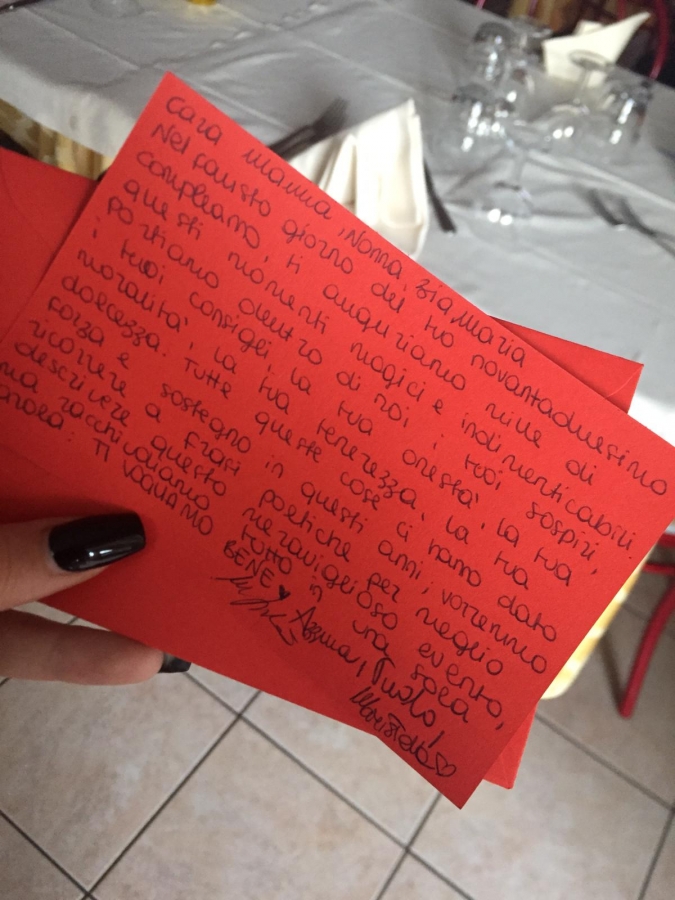 cara mamma, Nonna, zia Maria
Nel fausto giorno del tuo novantaduesimo
compleanno, ti auguriamo mille di
questi momenti magici e indimenticabili.
portiamo dentro di noi i tuoi sospiri,
i tuoi consigli, la tua onestà, la tua
moralità, la tua tenerezza, la tua
dolcezza. Tutte queste cose ci hanno dato
forza e sostegno in questi anni, vorremmo
ricorrere a frasi poetiche per meglio
descrivere questo meraviglioso evento,
ma racchiudiamo tutto in una sola
parola: TI VOGLIAMO BENE
Paolo!
Maristella